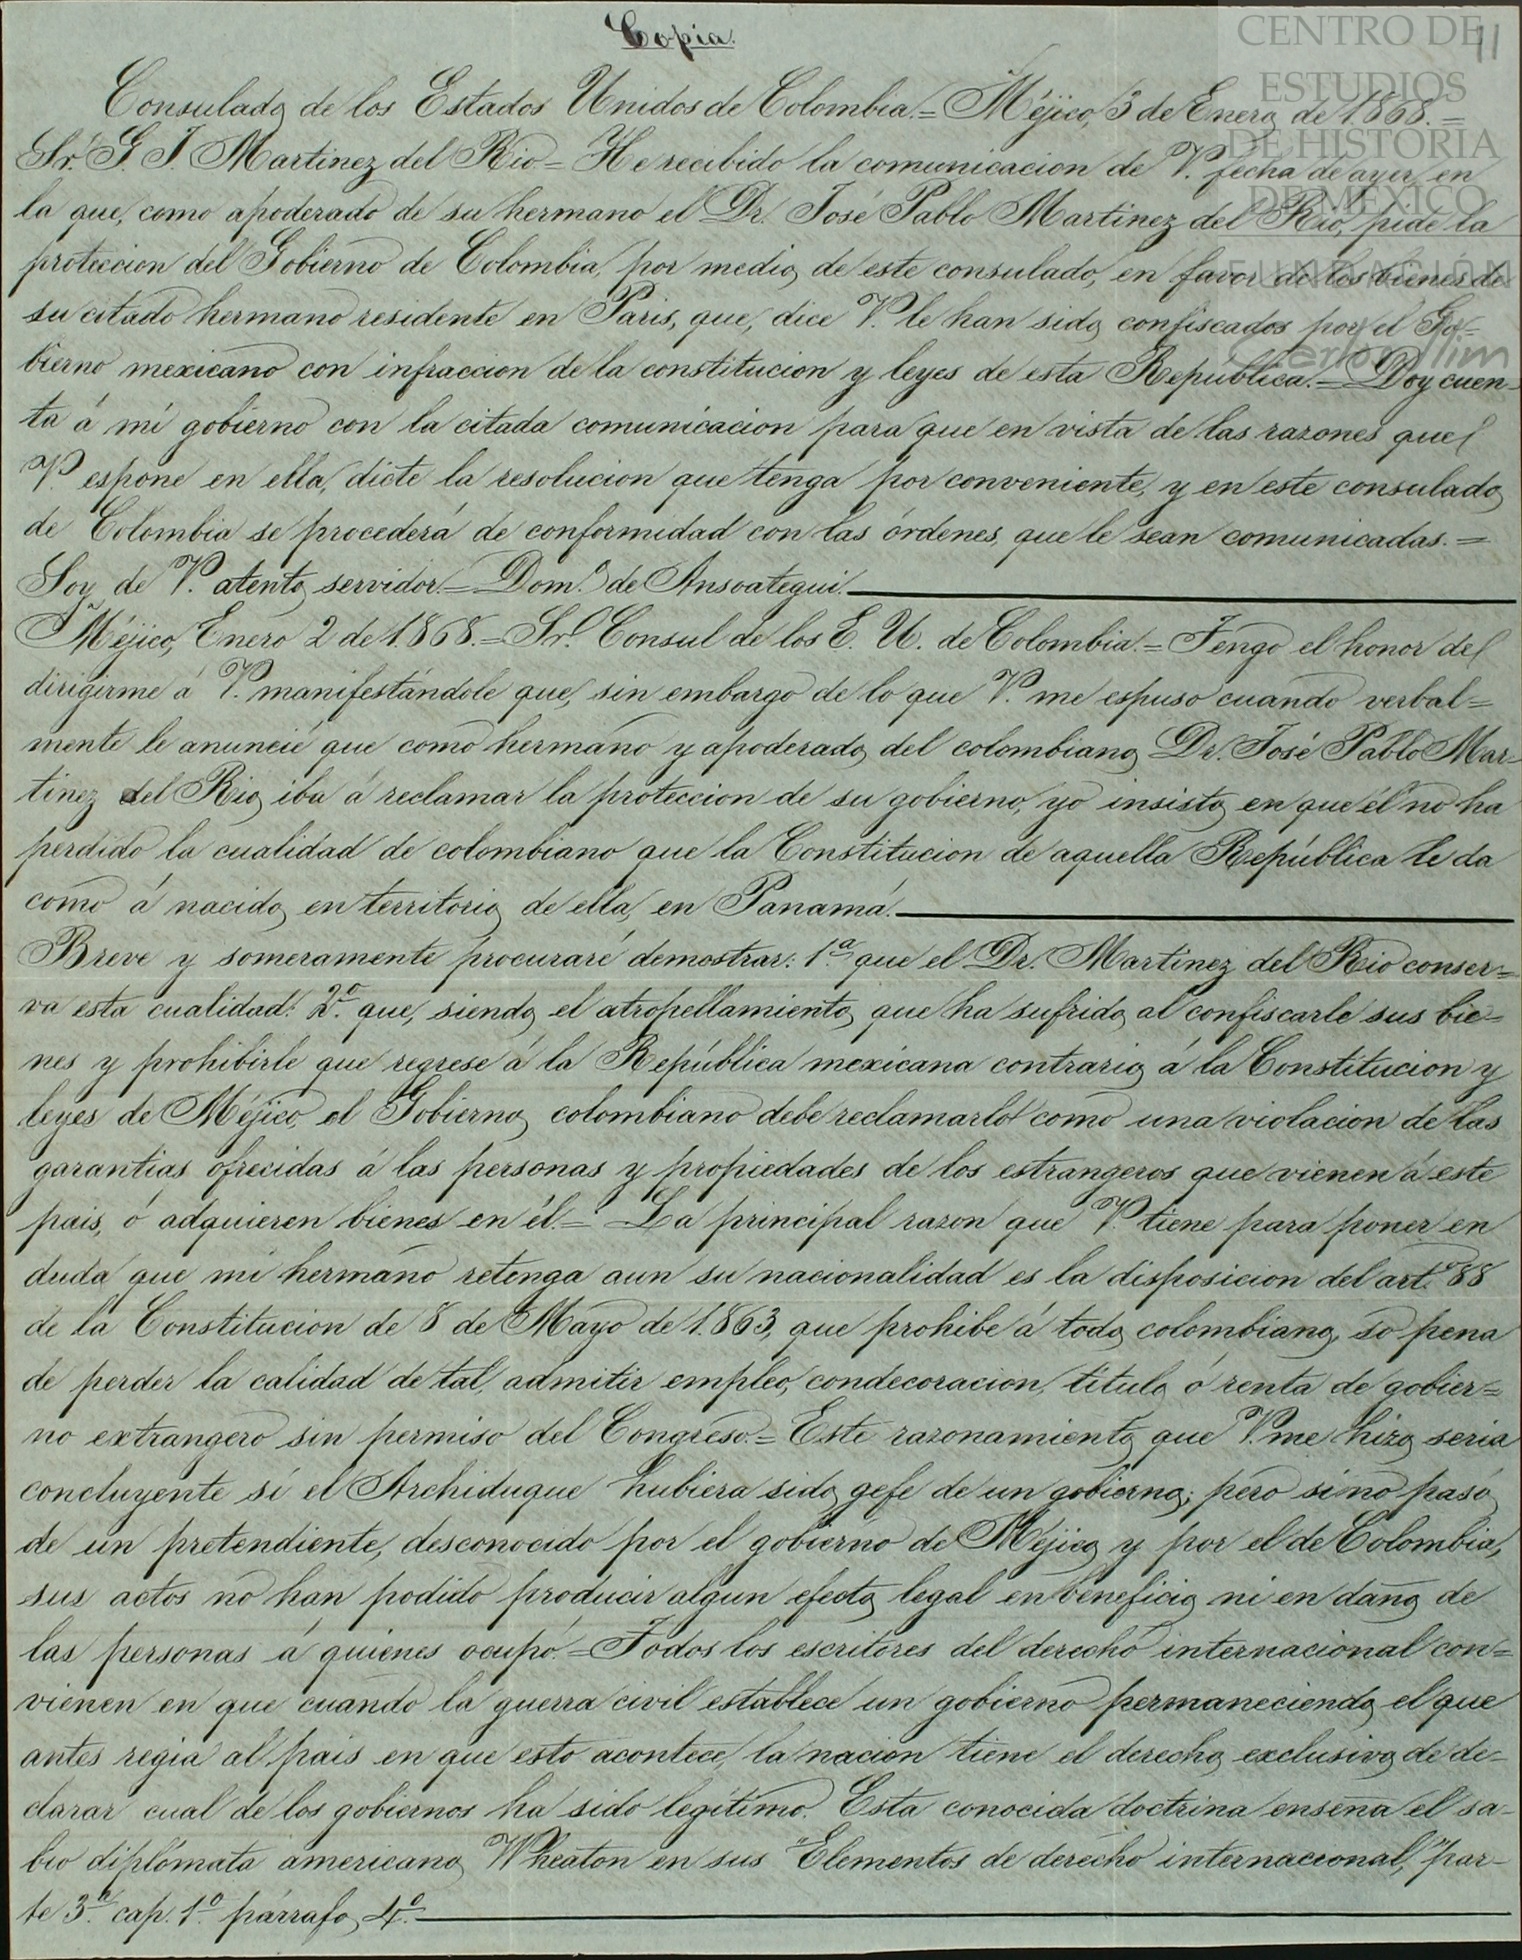 Copia.
11
CENTRO DE
ESTUDIOS
DE HISTORIA
DE MÉXICO
FUNDACIÓN
Carlos Slim
Consulado de los Estados Unidos de Colombia.= Méjico, 3 de Enero de 1.868.=
Sr. G. J. Martinez del Rio= He recibido la comunicacion de V. fecha de ayer, en
la que, como apoderado de su hermano el Dr. José Pablo Martinez del Rio, pide la
proteccion del Gobierno de Colombia, por medio de este consulado, en favor de los bienes de
su citado hermano residente en Paris, que, dice V. le han sido confiscados por el Go=
bierno mexicano con infraccion de la constitucion y leyes de esta República.= Doy cuen=
ta á mi gobierno con la citada comunicacion para que en vista de las razones que
V. espone en ella, dicte la resolucion que tenga por conveniente, y en este consulado
de Colombia se procederá de conformidad con las órdenes, que le sean comunicadas.=
Soy de V. atento servidor.= Dom.º de Ansoategui.
Méjico, Enero 2 de 1.868.= Sr. Consul de los E. U. de Colombia.= Tengo el honor de
dirigirme á V. manifestándole que, sin embargo de lo que V. me espuso cuando verbal=
mente le anuncié que como hermano y apoderado del colombiano Dr. José Pablo Mar=
tinez del Rio iba á reclamar la proteccion de su gobierno, yo insisto en que él no ha
perdido la cualidad de colombiano que la Constitucion de aquella República le da
como á nacido en territorio de ella, en Panamá.
Breve y someramente procuraré demostrar: 1.º que el Dr. Martinez del Rio conser=
va esta cualidad: 2.º que, siendo el atropellamiento que ha sufrido al confiscarle sus bie=
nes y prohibirle que regrese á la República mexicana contrario á la Constitucion y
leyes de Méjico, el Gobierno colombiano debe reclamarlo como una violacion de las
garantias ofrecidas á las personas y propiedades de los estrangeros que vienen á este
pais, ó adquieren bienes en él.= La principal razon que V. tiene para poner en
duda que mi hermano retenga aun su nacionalidad es la disposicion del art.º 88
de la Constitucion de 8 de Mayo de 1.863, que prohibe á todo colombiano, so pena
de perder la calidad de tal, admitir empleo, condecoracion, titulo ó renta de gobier=
no extrangero sin permiso del Congreso.= Este razonamiento que V. me hizo seria
concluyente si el Archiduque hubiera sido gefe de un gobierno; pero si no pasó
de un pretendiente, desconocido por el gobierno de Méjico y por el de Colombia,
sus actos no han podido producir algun efecto legal en beneficio ni en daño de
las personas á quienes ocupó.= Todos los escritores del derecho internacional con=
vienen en que cuando la guerra civil establece un gobierno permaneciendo el que
antes regia al pais en que esto acontece, la nacion tiene el derecho exclusivo de de=
clarar cual de los gobiernos ha sido legítimo. Esta conocida doctrina enseña el sa=
bio diplómata americano Wheaton en sus "Elementos de derecho internacional," par=
te 3.ª cap. 1.º párrafo 4.º